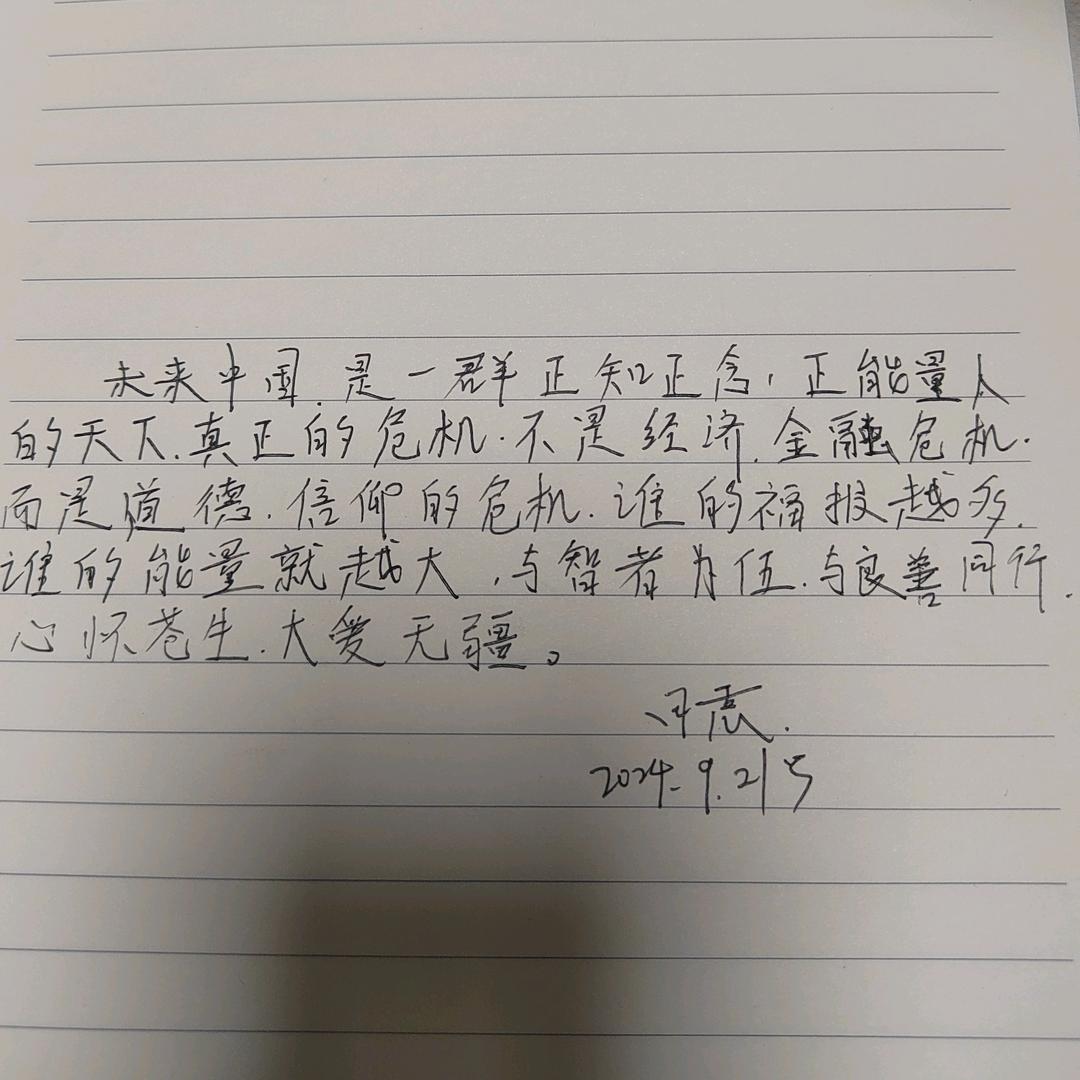 未来中国.是一群正知正念,正能量人
的天下.真正的危机.不是经济.金融危机.
而是道德.信仰的危机.谁的福报越多.
谁的能量就越大,与智者为伍.与良善同行.
心怀苍生.大爱无疆。
2024.9.21号